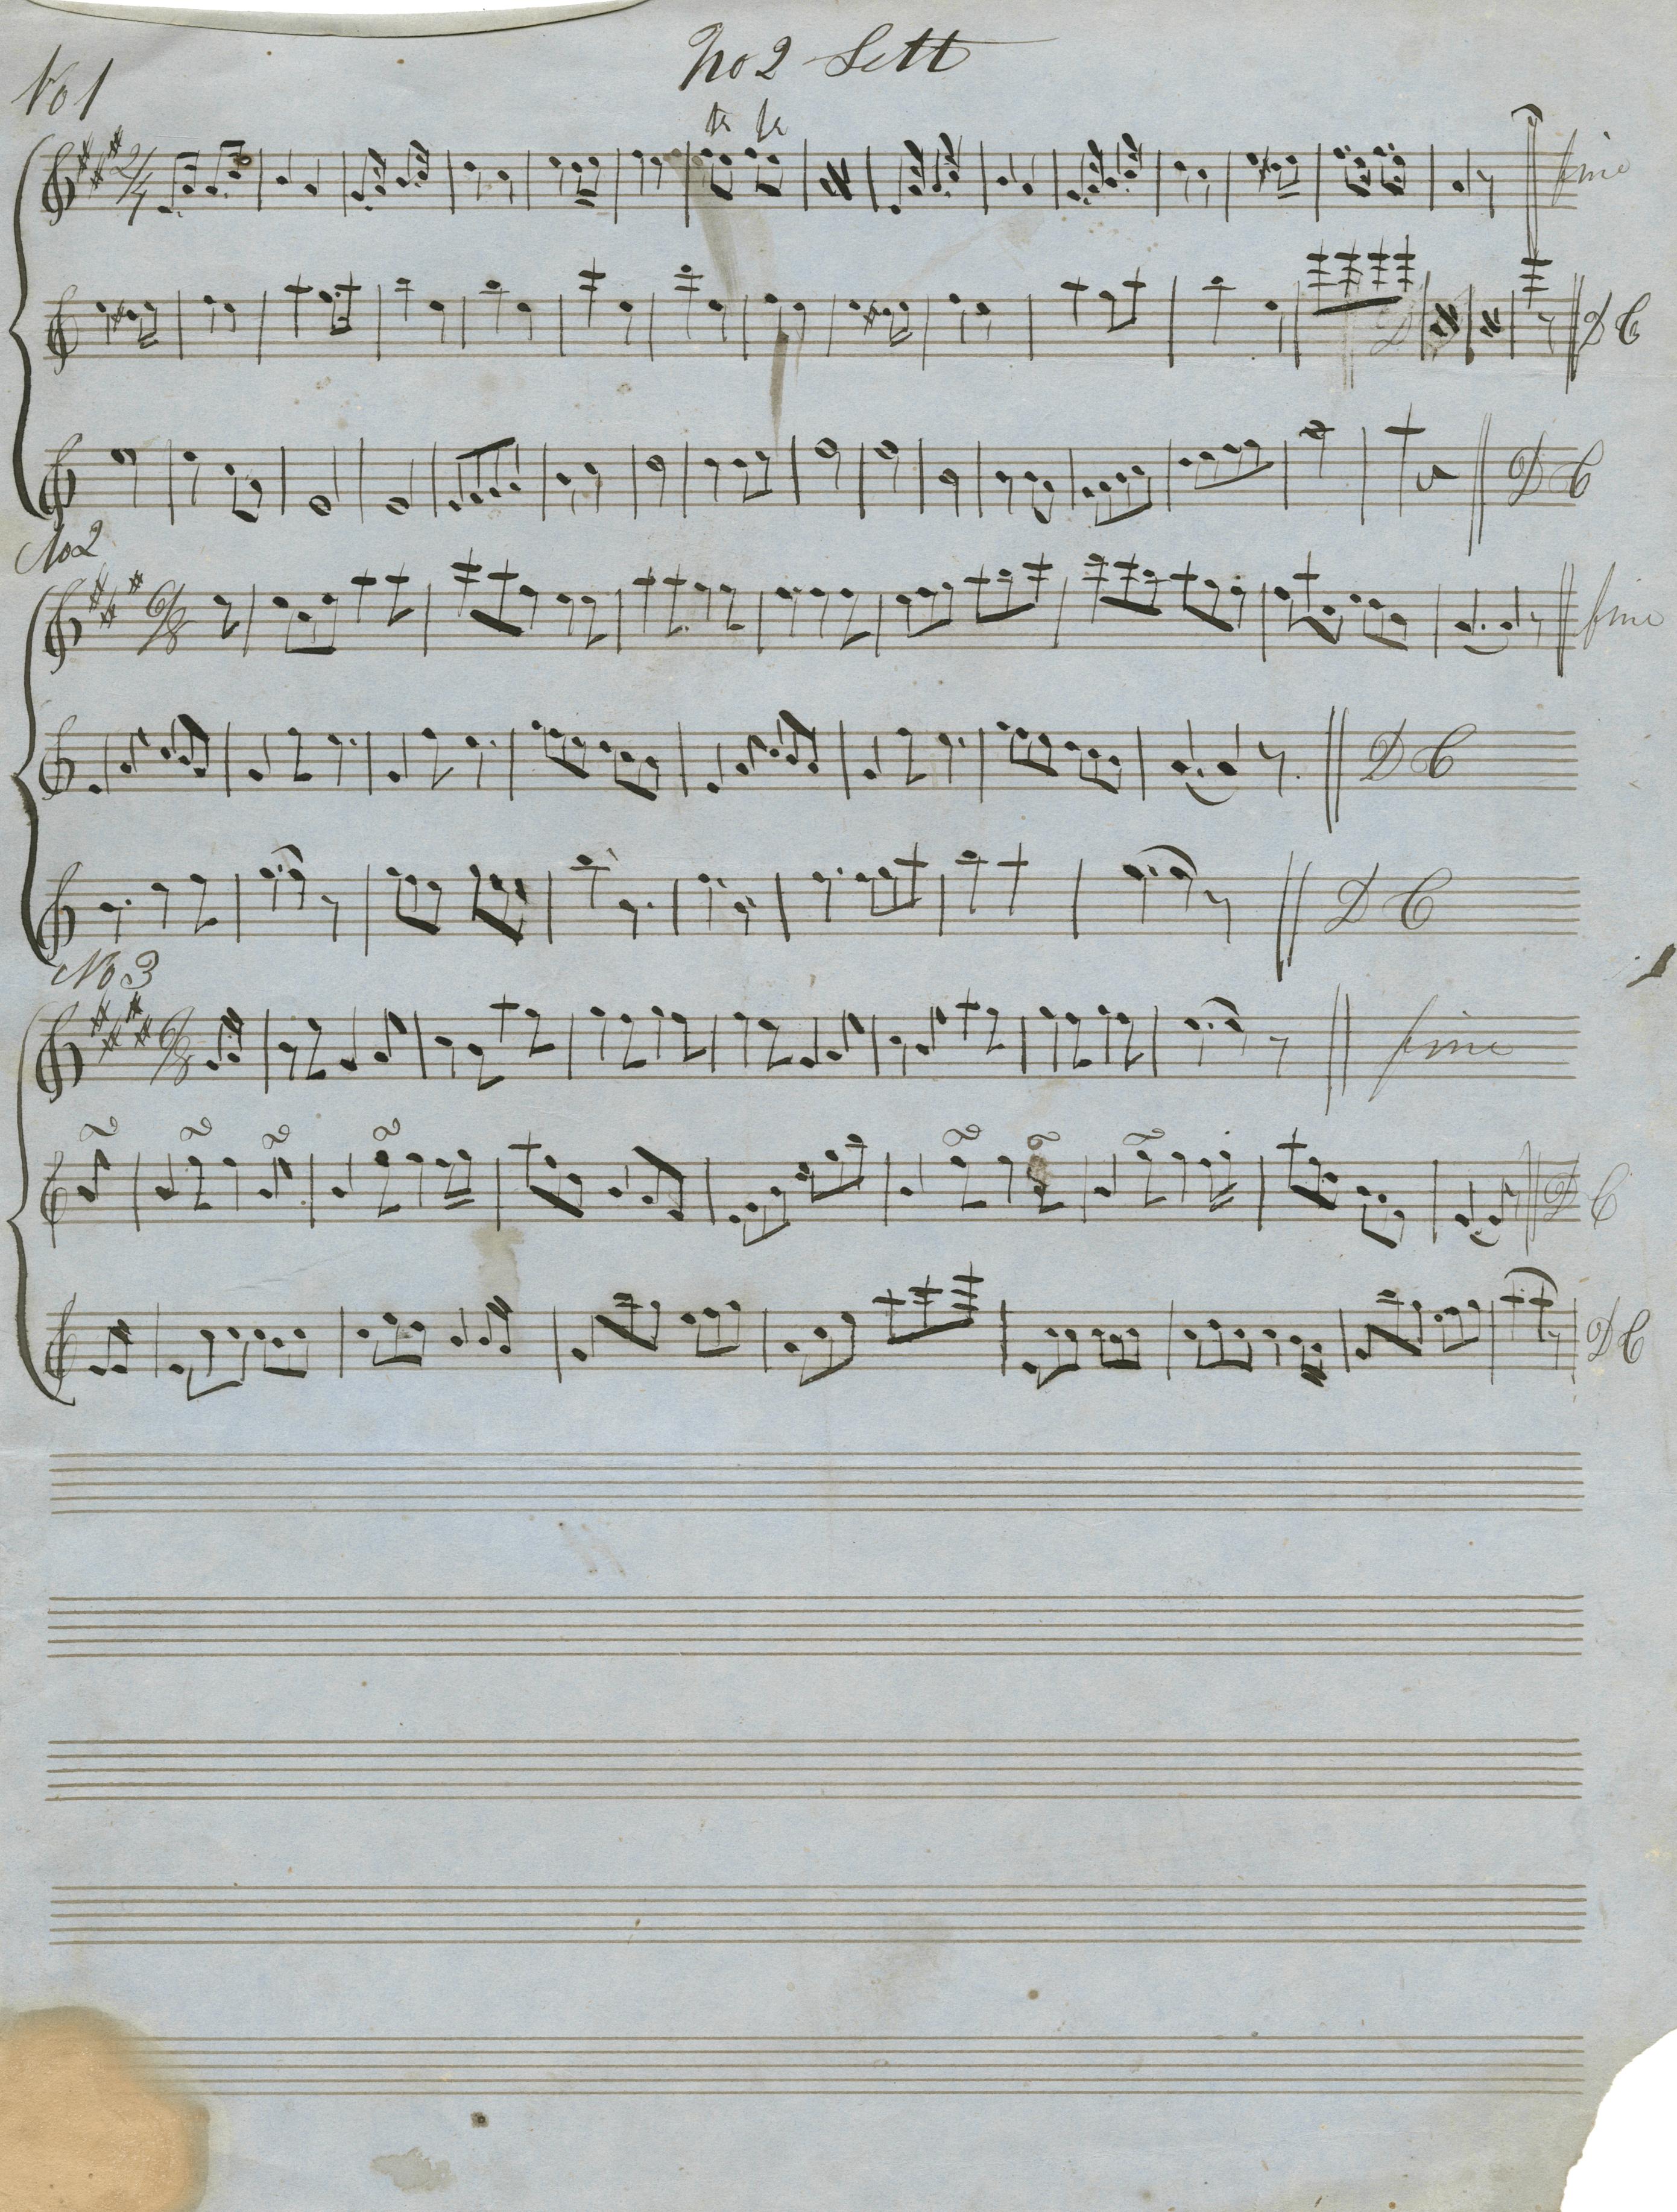 No 2 Sett
No 1
tr tr
2/4
fine
D C
D C
No 2
6/8
fine
D C
D C
No 3
6/8
fine
D C
D C